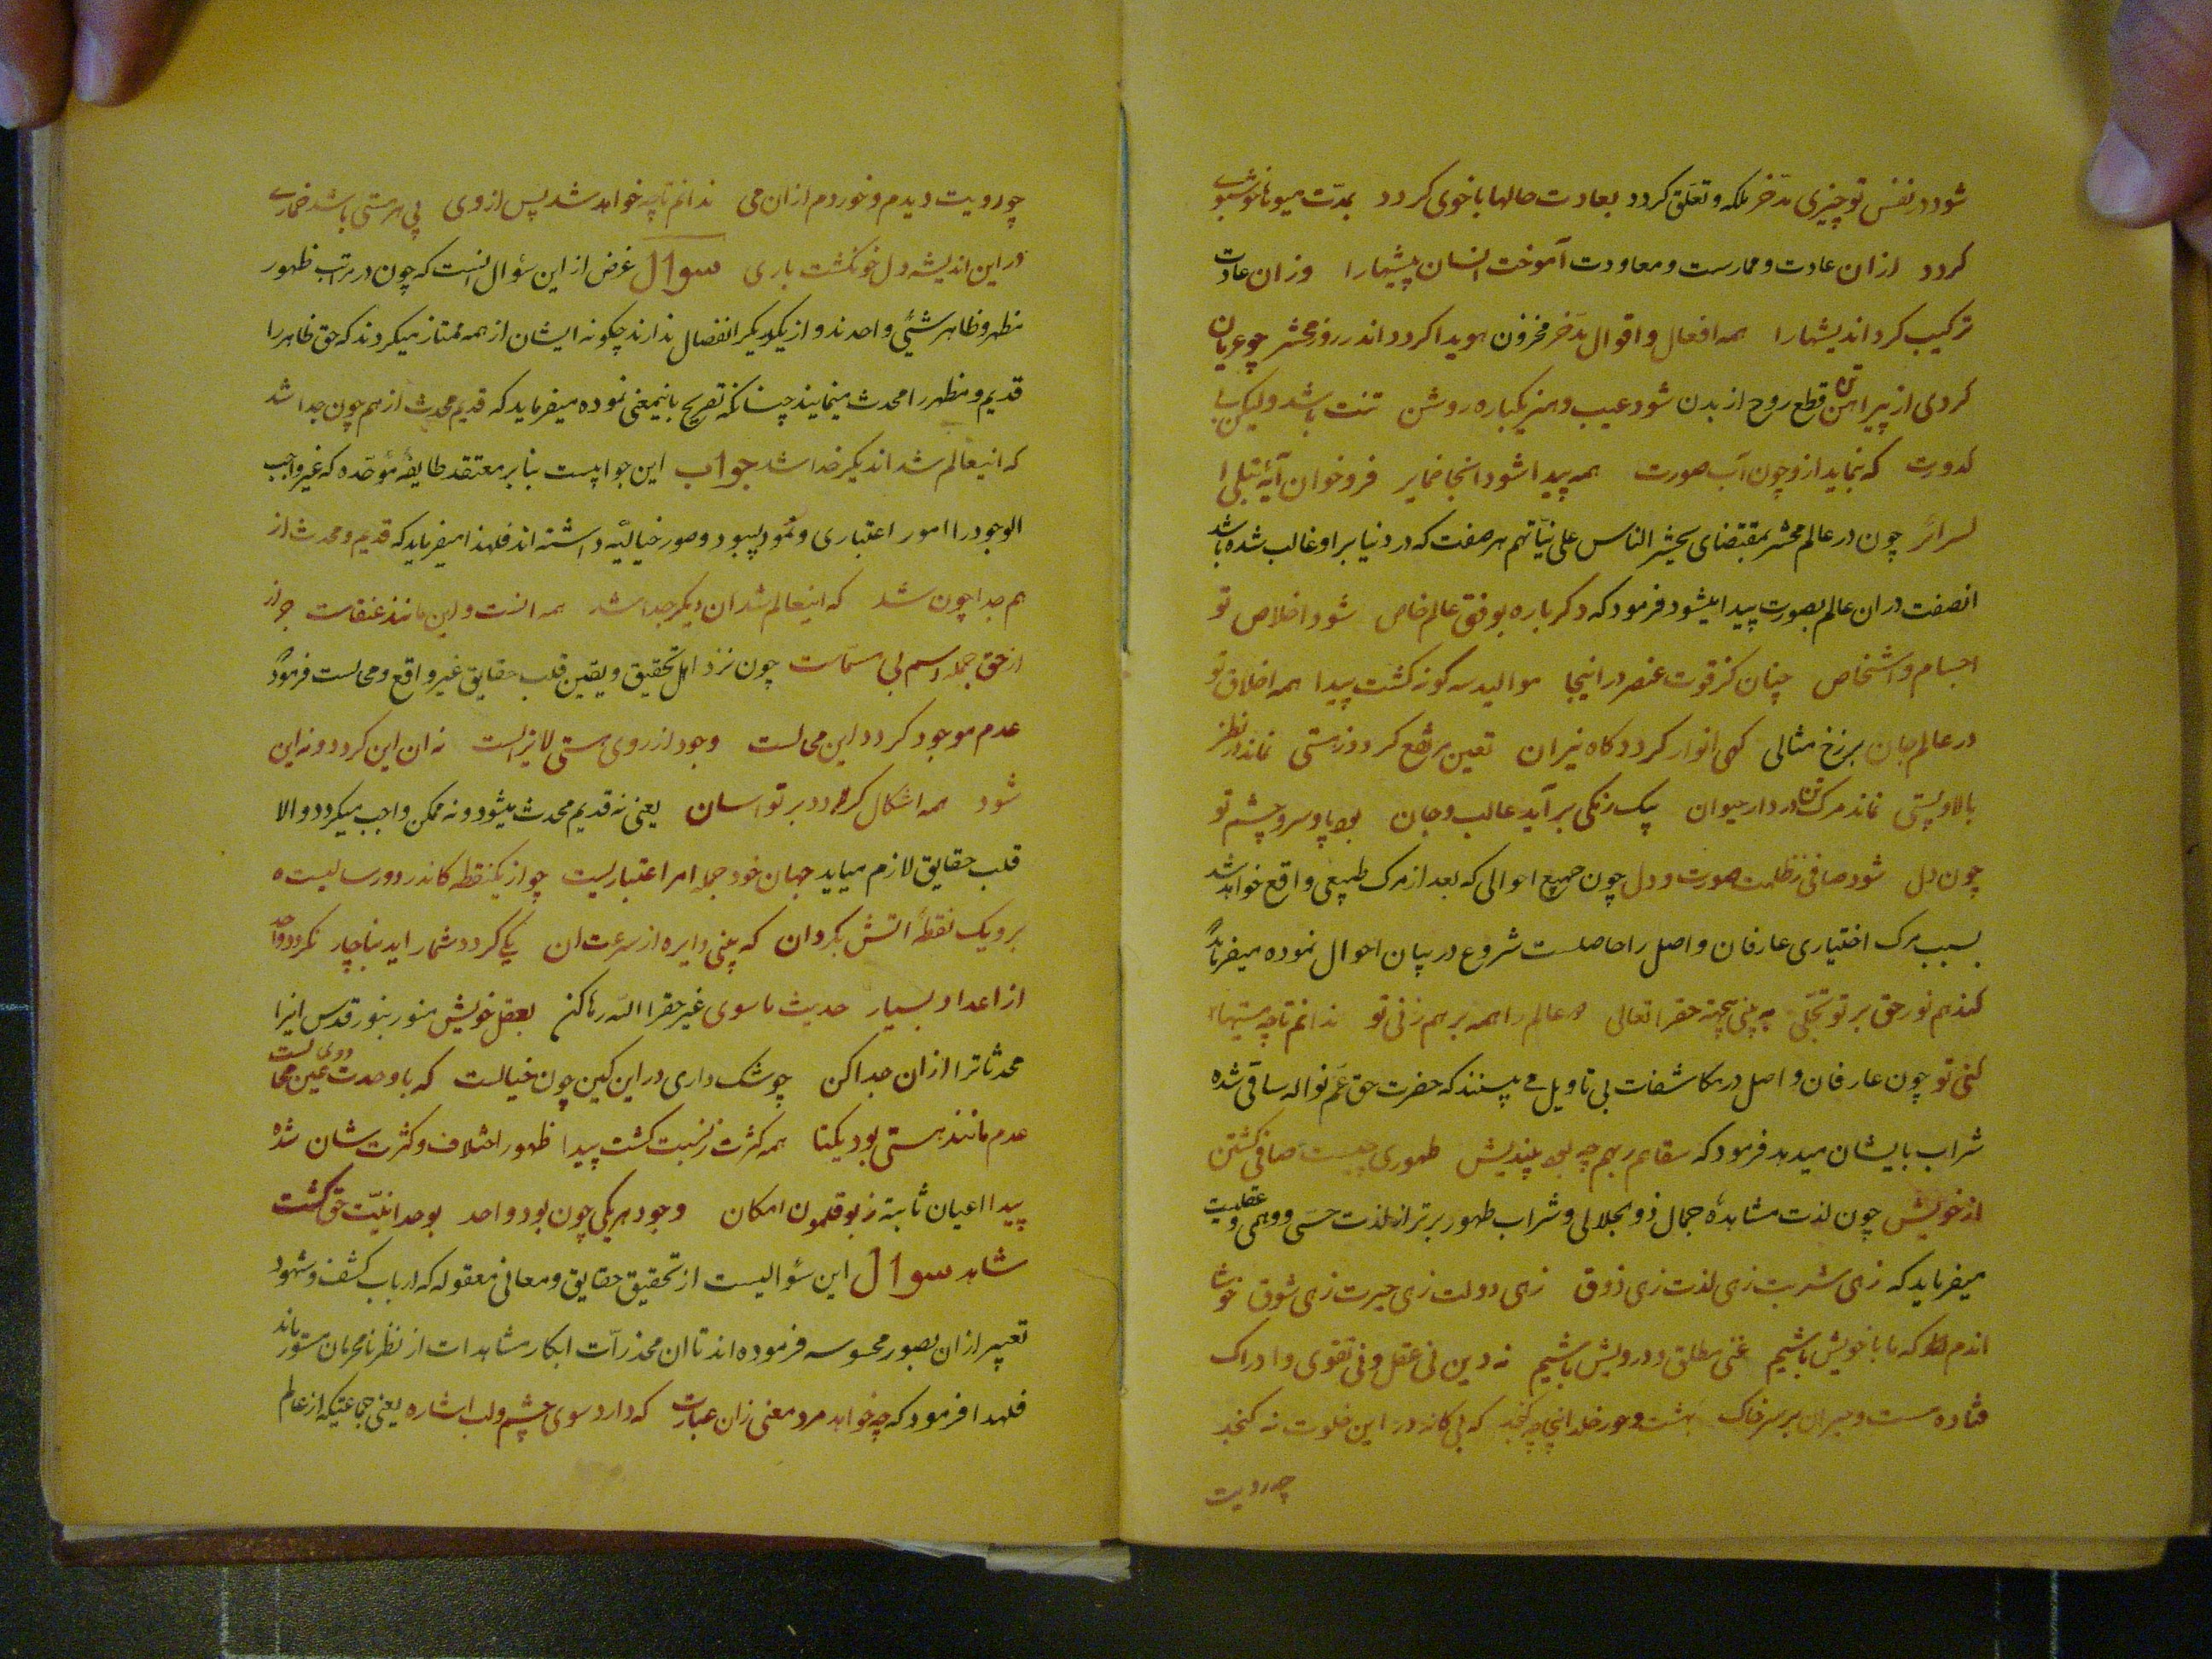 شود در نفس تو چیزی مدّخر ملکه و تعلّق کردد بعادت حالها با خوی کردد بمدّت میوها خوشبوی
کردد ازان عادت و ممارست و معاودت آموخت انسان پیشهارا وزان عادت
ترکیب کرد اندیشهارا همه افعال و اقوال مدّخر مخزون هویدا کردد اندر روز محشر چو عریان
کردی از پیراهن تن قطع روح از بدن شود عیب و هنر یکباره روشن تنت باشد ولیکن بی
کدورت که بنماید ازو چون آب صورت همه پیدا شود انجا ضمایر فرو خوان آیۀ تبلی ا
لسرائر چون در عالم محشر بمقتضای یحشر الناس علی نیّاتهم هر صفت که در دنیا بر او غالب شده باشد
انصفت دران عالم بصورت پیدا میشود فرمود که دکرباره بوفق عالم خاص شود اخلاص تو
اجسام و اشخاص چنان کز قوت عنصر در اینجا موالید سه کونه کشت پیدا همه اخلاق تو
در عالم جان برزخ مثالی کهی انوار کردد کاه نیران تعین مرتفع کردد ز هستی نماند در نظر
بالا و پستی نماند مرک تن در دار حیوان بیک رنکی برآید غالب و جان بود پا و سر و چشم تو
چون دل شود صافی ز ظلمت صورت و دل چون جمیع احوالی که بعد از مرک طبیعی واقع خواهد شد
بسبب مرک اختیاری عارفان واصل را حاصلست شروع در بیان احوال نموده میفرماید
کند هم نور حق بر تو تجلّی به بینی بیجهة حقرا تعالی دو عالم را همه بر هم زنی تو ندانم تا چه مستیها
کنی تو چون عارفان واصل در مکاشفات بی تاویل می بینند که حضرت حق عمّ نواله ساقی شده
شراب بایشان میدهد فرمود که سقاهم ربهم چه بود بیندیش طهوری چیست صافی کشتن
از خویش چون لذت مشاهدۀ جمال ذو الجلالی و شراب طهور برتر از لذت حسّی و وهمی و عقلیت
میفرماید که زهی شربت زهی لذت زهی ذوق زهی دولت زهی حیرت زهی شوق خوشا
اندم که ما با خویش باشیم غنی مطلق و درویش باشیم نه دین نی عقل و نی تقوی و ادراک
فتاده مست و حیران بر سر خاک بهشت و حور خلد انجا چه سنجد که بی کانه در این خلوت نه کنجد
چو رویت
چو رویت دیدم و خوردم ازان می ندانم تا چه خواهد شد پس از وی پی هر مستی باشد خماری
در این اندیشه دل خون کشت باری سوال غرض از این سؤال انست که چون در مراتب ظهور
مظهر و ظاهر شیئی واحدند و از یکدیکر انفصال ندارند چکونه ایشان از همه ممتاز میکردند که حق ظاهر را
قدیم و مظهر را محدث مینمایند چنانکه تصریح باینمعنی نموده میفرماید که قدیم محدث از هم چون جدا شد
که اینعالم شد اندیکر خدا شد جواب این جوابیست بنابر معتقد طایفۀ مؤحّده که غیر واجب
الوجود را امور اعتباری و نمود بی‌بود و صور خیالیّه داشته‌اند فلهذا میفرماید که قدیم و محدث از
هم جدا چون شد که اینعالم شد ان دیکر جدا شد همه انست و این مانند عنقاست جز از
از حق جمله اسم بی مسمّاست چون نزد اهل تحقیق و یقین قلب حقایق غیر واقع و محالست فرمود
عدم موجود کردد این محالست وجود از روی هستی لایزالست نه ان این کردد و نه این
شود همه اشکال کردد بر تو اسان یعنی نه قدیم محدث میشود و نه ممکن واجب میکردد و الا
قلب حقایق لازم میاید جهان خود جمله امر اعتباریست چو از یکنقطه کاندر دور ساریست
برو یک نقطۀ اتش بکردان که بینی دایره از سرعت ان یکی کردد شمار اید بناچار نکردد واحد
از اعداد بسیار حدیث ماسوی غیر حقرا الله رها کن بعقل خویش منور بنور قدس اینرا
محدثاترا ازان جدا کن چو شک داری در این کین چون خیالست که با وحدت دوی عین محالست
عدم مانند هستی بود یکتا همه کثرت ز نسبت کشت پیدا ظهور اختلاف و کثرت شان شده
پیدا اعیان ثابته ز بوقلمون امکان وجود هر یکی چون بود واحد بوحدانیّت حق کشت
شاهد سوال این سؤالیست از تحقیق حقایق و معانی معقوله که ارباب کشف و شهود
تعبیر ازان بصور محسوسه فرموده‌اند تا ان مخدرات ابکار مشاهدات از نظر نامحرمان مستور ماند
فلهذا فرمود که چه خواهد مرد معنی زان عبارت که دارد سوی چشم و لب اشاره یعنی جماعتیکه از عالم